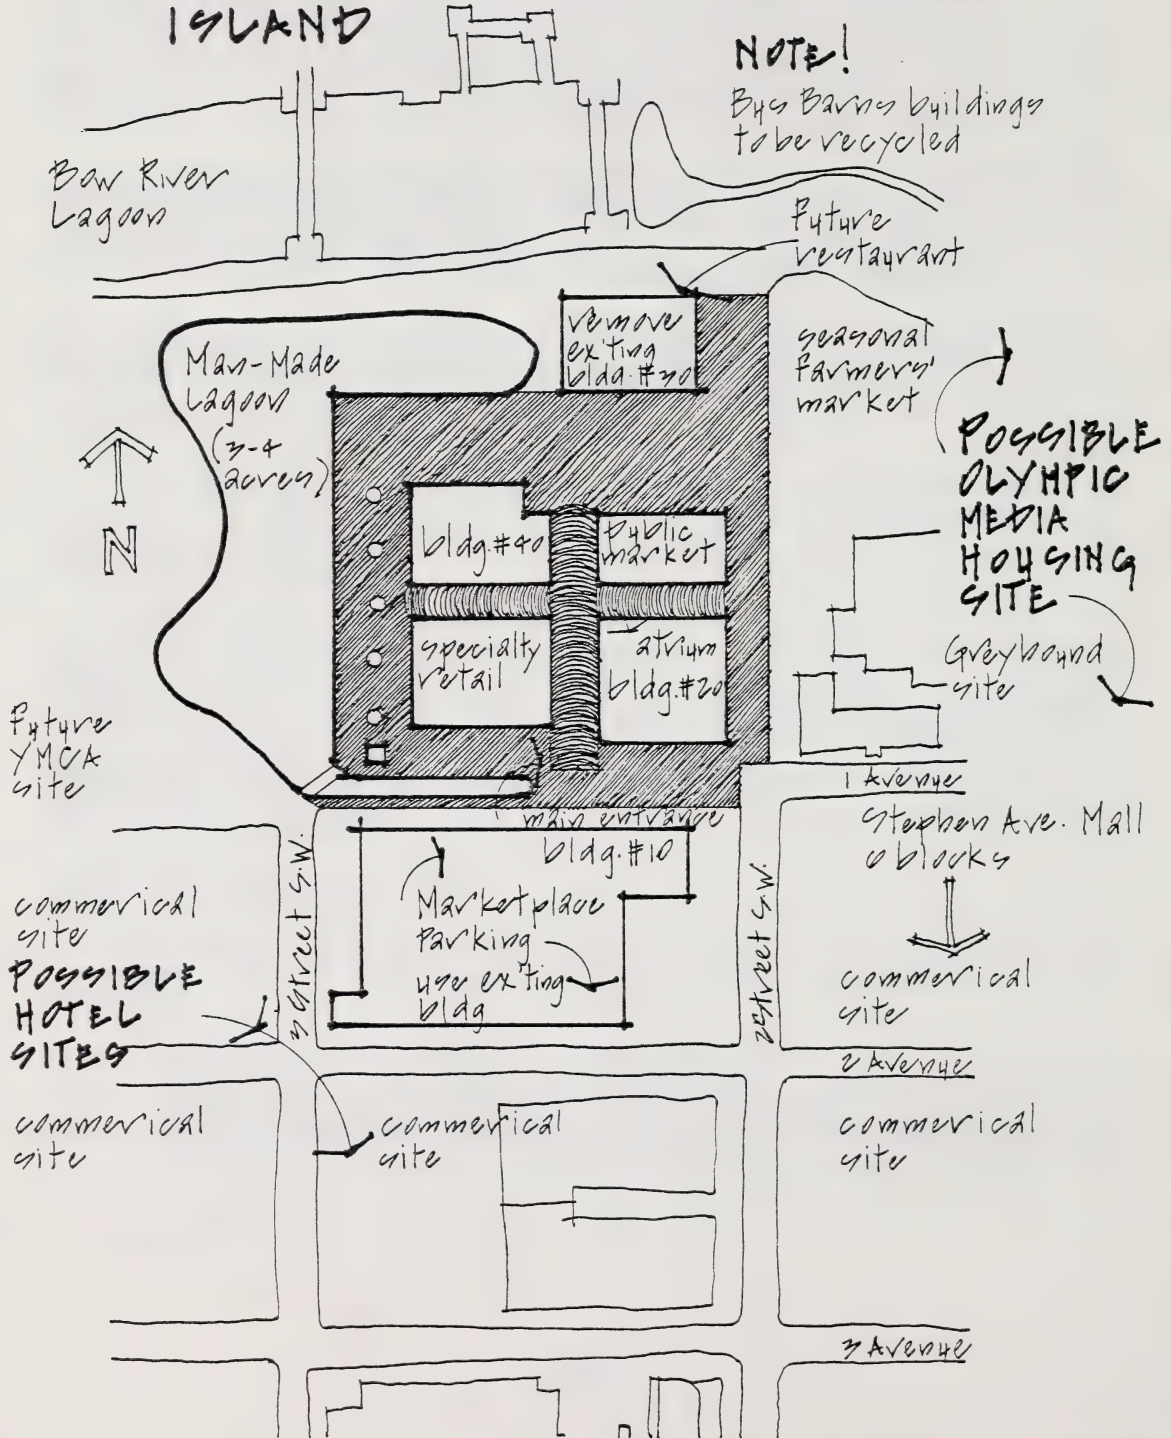 ISLAND
NOTE!
Bus Barns buildings
to be recycled
Bow River
Lagoon
Future
restaurant
remove
ex'ting
bldg.#30
seasonal
farmers'
market
Man-Made
Lagoon
(3-4
acres)
N
POSSIBLE
OLYMPIC
MEDIA
HOUSING
SITE
bldg.#40
public
market
specialty
retail
atrium
bldg.#20
Greyhound
site
Future
YMCA
site
1 Avenue
main entrance
Stephen Ave. Mall
6 blocks
bldg.#10
Marketplace
Parking
use ex'ting
bldg
3 Street S.W.
2 Street S.W.
commerical
site
POSSIBLE
HOTEL
SITES
commerical
site
2 Avenue
commerical
site
commerical
site
commerical
site
3 Avenue